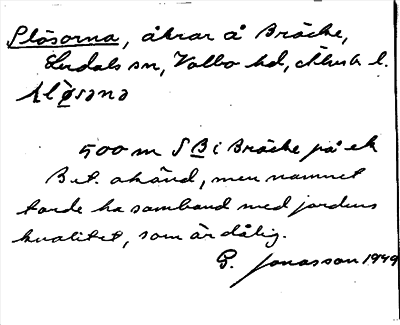 Plösorna, åkrar å Bräcke,
Lerdals sn, Valbo hd, Älvsb l.
plø̀sənə
500 m S B i Bräcke på ek
Bet. okänd, men namnet
torde ha samband med jordens
kvalitet, som är dålig.
G. Jonasson 1949